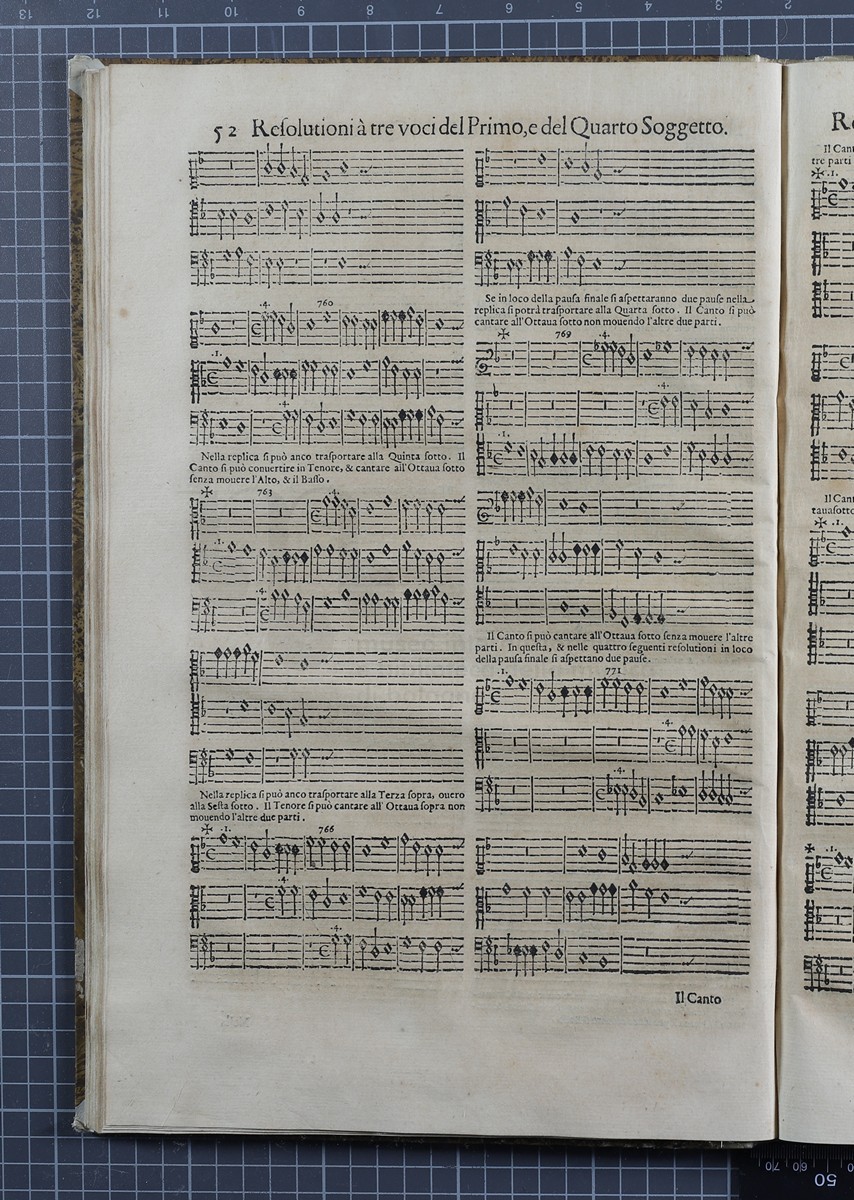 52 Reſolutioni à tre voci del Primo, e del Quarto Soggetto.
.4. 760
.1.
.4.
Nella replica ſi può anco traſportare alla Quinta ſotto. Il
Canto ſi può conuertire in Tenore, & cantare all'Ottaua ſotto
ſenza mouere l'Alto, & il Baſſo.
763 .4.
.1.
.4.
Nella replica ſi può anco traſportare alla Terza ſopra, ouero
alla Seſta ſotto. Il Tenore ſi può cantare all'Ottaua ſopra non
mouendo l'altre due parti.
.1. 766
.4.
.4.
Se in loco della pauſa finale ſi aſpettaranno due pauſe nella
replica ſi potrà traſportare alla Quarta ſotto. Il Canto ſi può
cantare all'Ottaua ſotto non mouendo l'altre due parti.
769 .4.
.4.
.1.
Il Canto ſi può cantare all'Ottaua ſotto ſenza mouere l'altre
parti. In queſta, & nelle quattro ſeguenti reſolutioni in loco
della pauſa finale ſi aſpettano due pauſe.
.1. 771
.4.
.4.
Il Canto
Il Cant
tre parti
.1.
Il Cant
tauaſotto
.1.
.1.
13 12 11 10 9 8 7 6 5 4 3 2
70 60 50